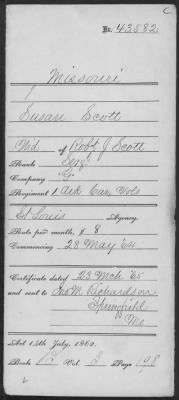 C
No. 43882
Missouri
Susan Scott
Wid. of Robt J Scott
Rank Sergt
Company G
Regiment 1 Ark Cav Vols
St Louis Agency
Rate per month, $ 8
Commencing 28 May '64
Certificate dated 23 Mch '65
and sent to Jno M. Richardson
Springfield
Mo
Act 14th July, 1862.
Book B Vol. 3 Page 198